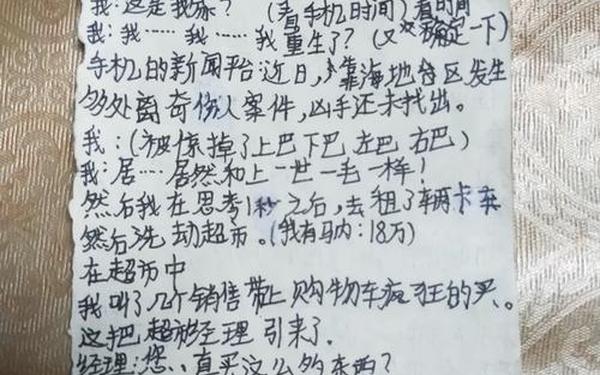 我:这是我家?(看手机时间)看时间
我:我……我……我重生了?(又次确定一下)
手机的新闻平台:近日,靠海地带区发生
多处离奇伤人案件,凶手还未找出。
我:(被惊掉了上巴下巴左巴右巴)
我:居……居然和上一世一毛一样!
然后我在思考1秒之后,去租了辆卡车
然后洗劫超市。(我有马内:18万)
在超市中
我叫了几个销售带上购物车疯狂的买。
这把超市经理引来了.
经理:您、真买这么多东西?